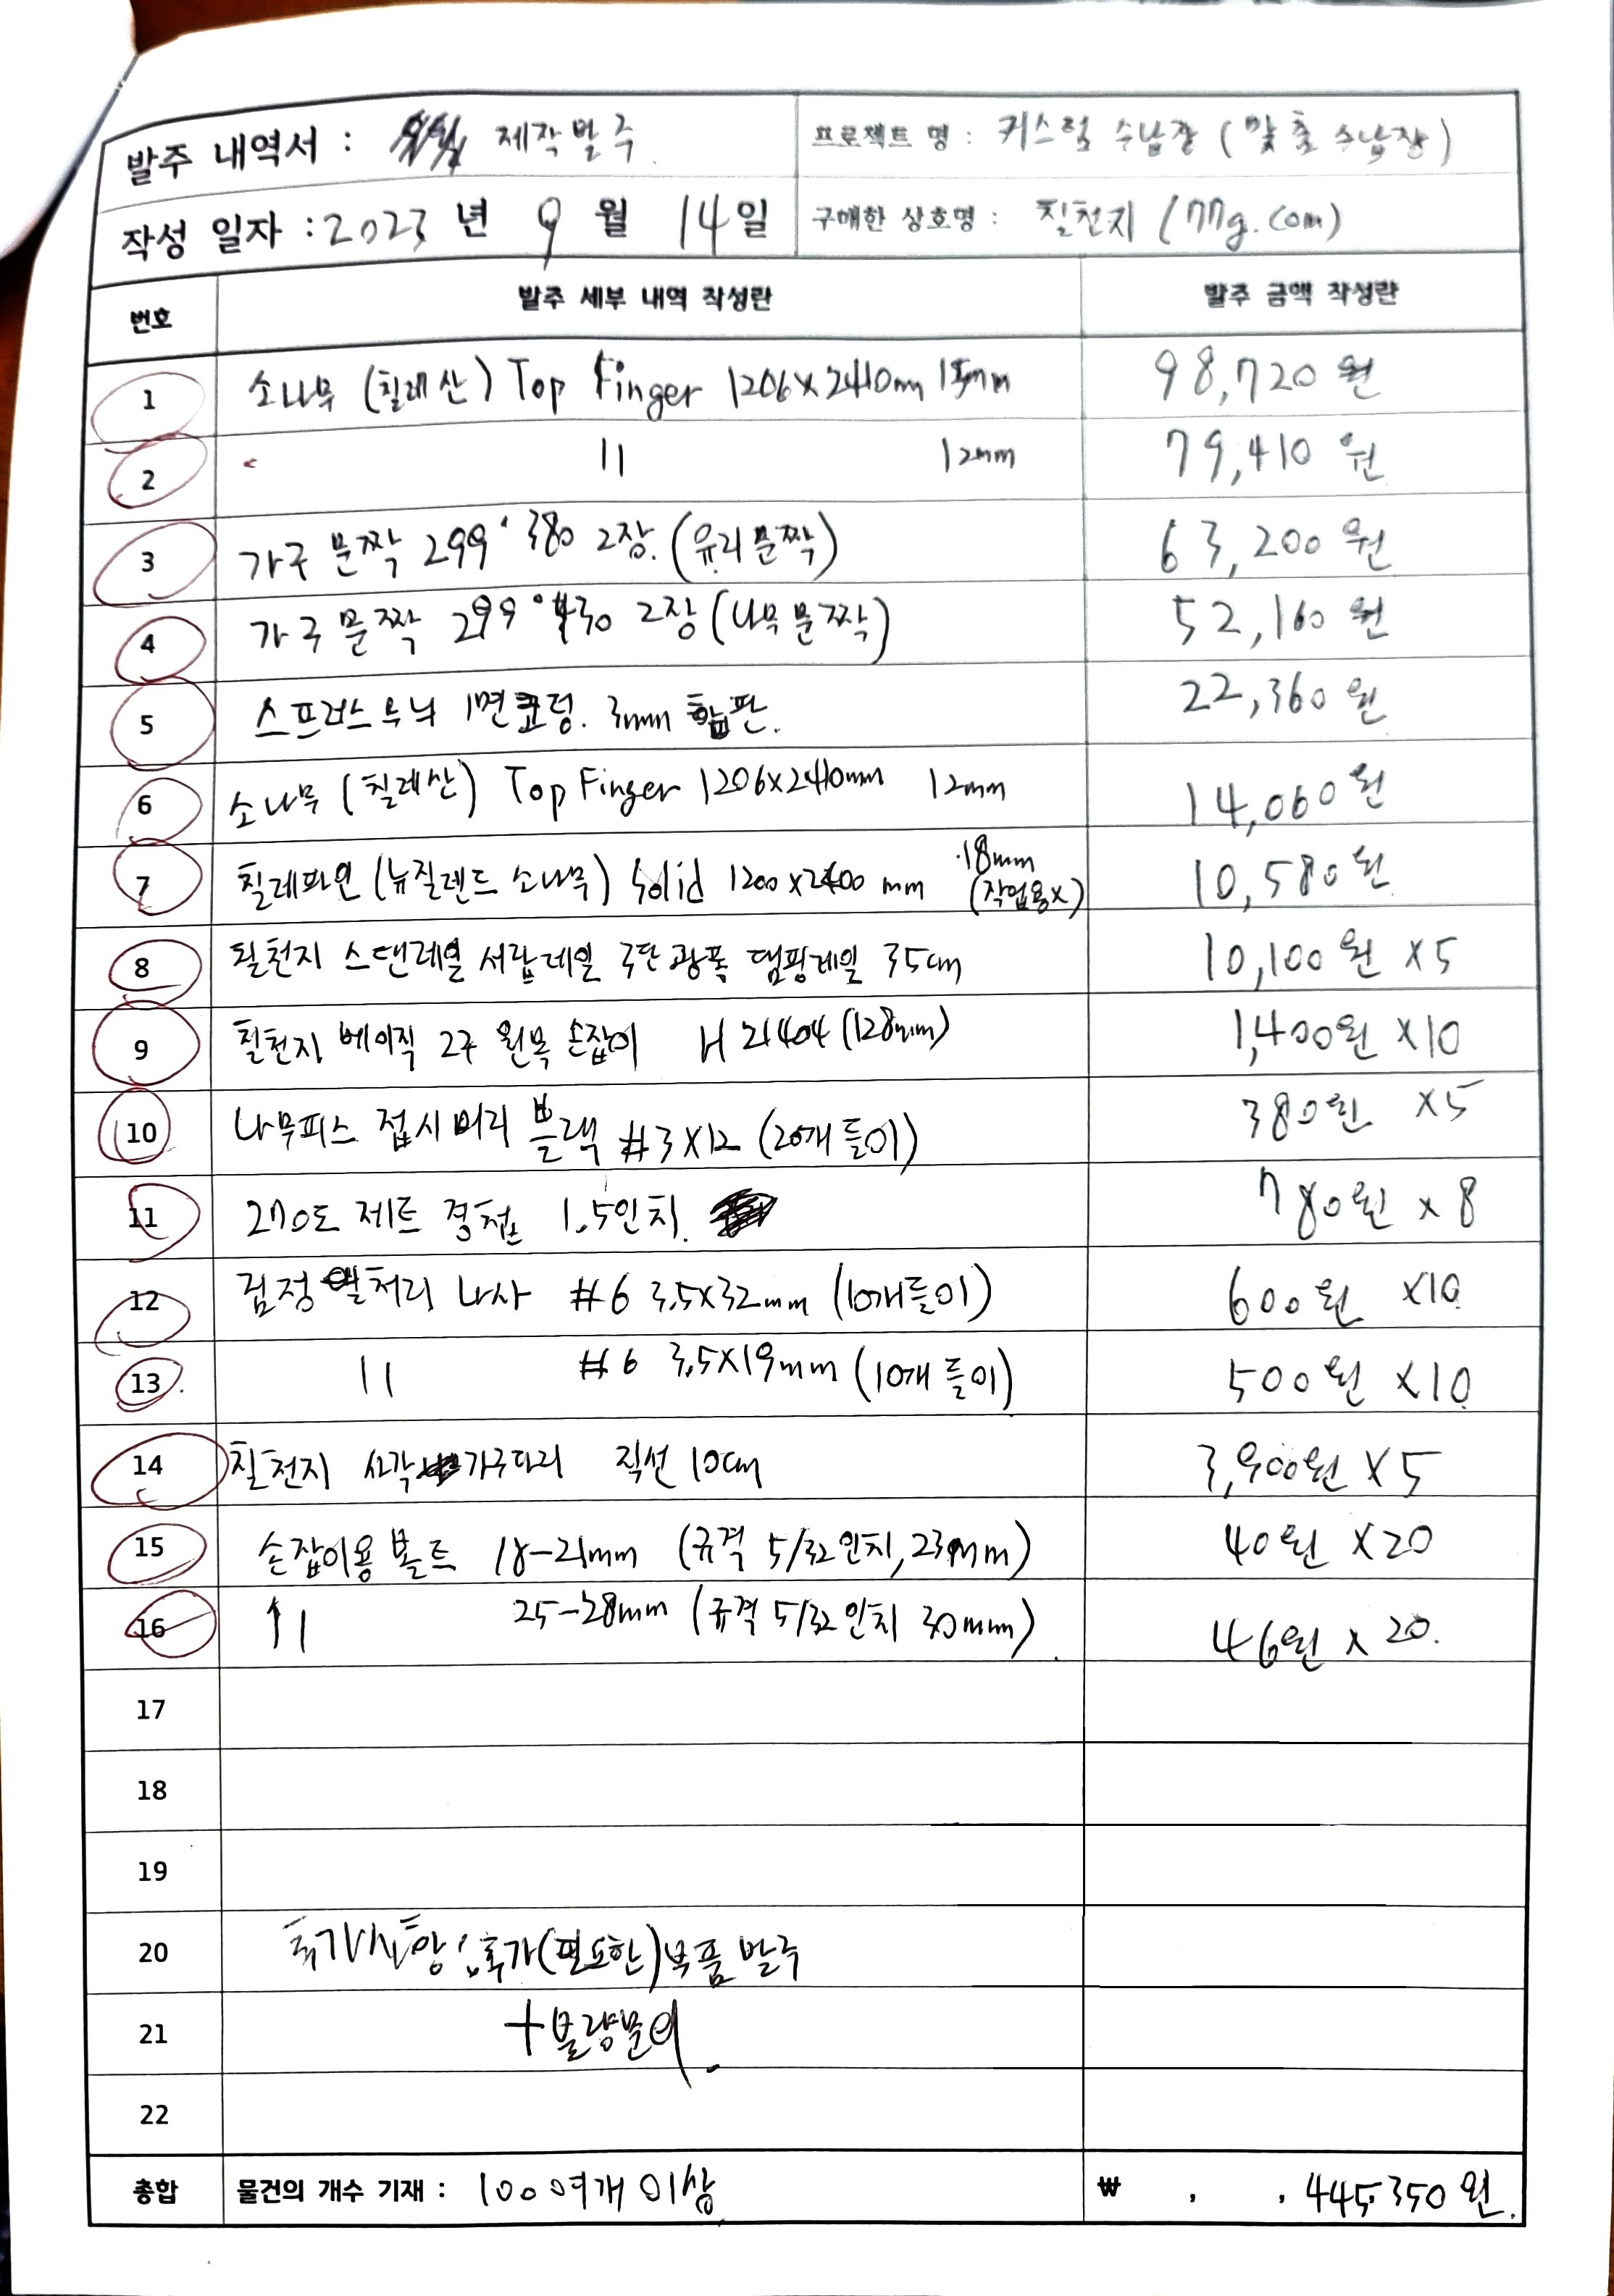 발주 내역서 : 제작발주
프로젝트 명 : 커스텀 수납장 (맞춤 수납장)
작성 일자 : 2023 년 9 월 14 일
구매한 상호명 : 칠천지 (77g.com)
번호 발주 세부 내역 작성란 발주 금액 작성란
1 소나무 (칠레산) Top Finger 1206x2410mm 15mm 98,720원
2 〃 12mm 79,410원
3 가구 문짝 299*380 2장. (유리문짝) 63,200원
4 가구 문짝 299*430 2장 (나무문짝) 52,160원
5 스프러스무늬 1면코팅. 3mm 합판. 22,360원
6 소나무 (칠레산) Top Finger 1206x2410mm 12mm 14,060원
7 칠레파인 (뉴질렌드 소나무) Solid 1200x2400 mm 18mm (작업용x) 10,580원
8 칠천지 스텐레일 서랍레일 3단광폭 댐핑레일 35cm 10,100원 x5
9 칠천지 베이직 2구 원목 손잡이 H21404 (128mm) 1,400원 x10
10 나무피스 접시머리 블랙 #3x12 (20개 들이) 380원 x5
11 270도 제트 경첩 1.5인치. 780원 x8
12 검정 열처리 나사 #6 3.5x32mm (10개들이) 600원 x10
13 〃 #6 3.5x19mm (10개 들이) 500원 x10
14 칠천지 사각 가구다리 직선 10cm 3,900원 x5
15 손잡이용 볼트 18-21mm (규격 5/32인치, 23mm) 40원 x20
16 〃 25-28mm (규격 5/32인치 30mm) 46원 x 20.
17
18
19
20 추가사항 : 추가(필요한)부품 발주
21 +불량문의.
22
총합 물건의 개수 기재 : 100여개 이상 ₩ , , 445,350원.